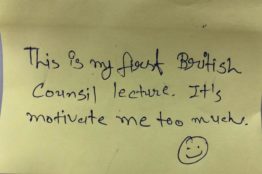 This is my first British
Counsil lecture. It's
motivate me too much.